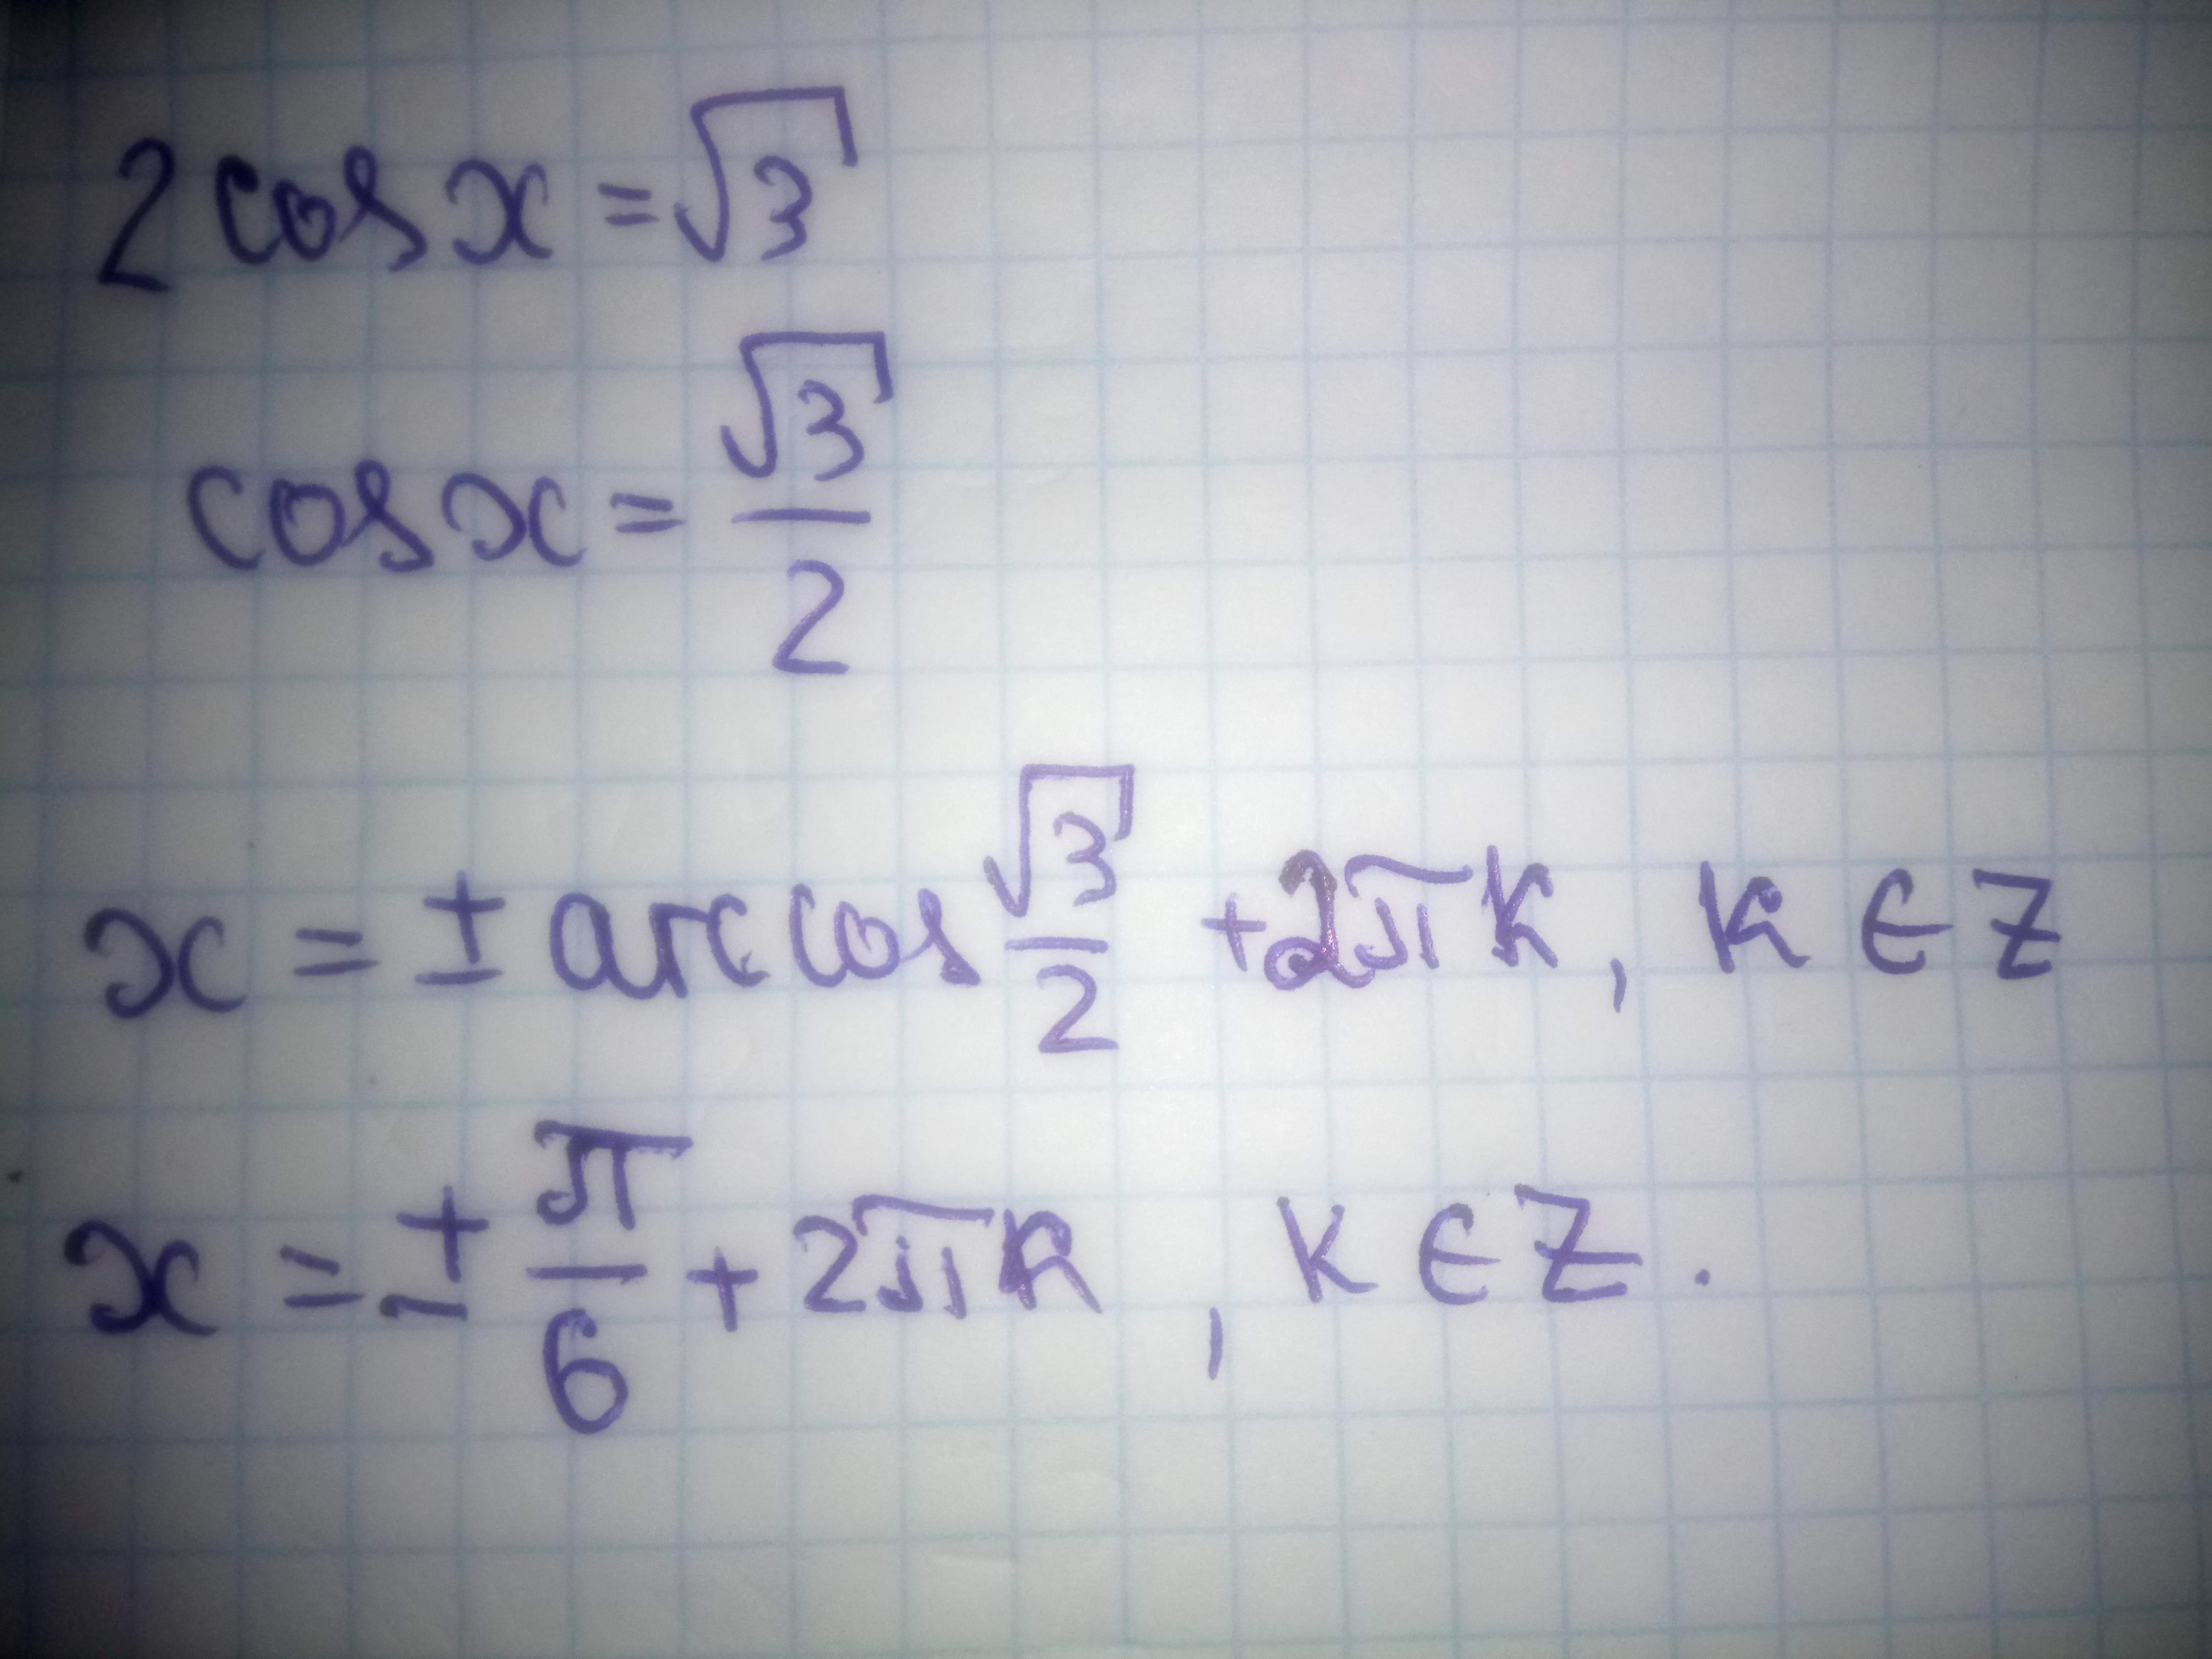 2 cos x = √3
cos x = √3/2
x = ± arccos √3/2 + 2πk, k ∈ Z
x = ± π/6 + 2πk, k ∈ Z.